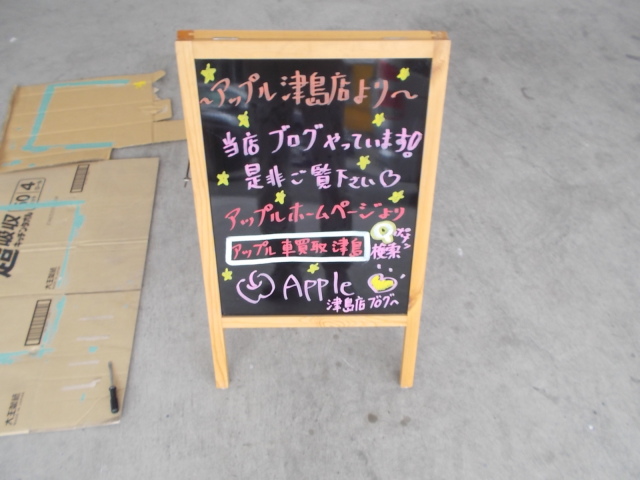 ～アップル津島店より～
当店ブログやっています!
是非ご覧下さい♡
アップルホームページより
アップル 車買取 津島 検索
Apple
津島店ブログへ
超吸収
キッチンタオル
4
大王製紙
大王製紙